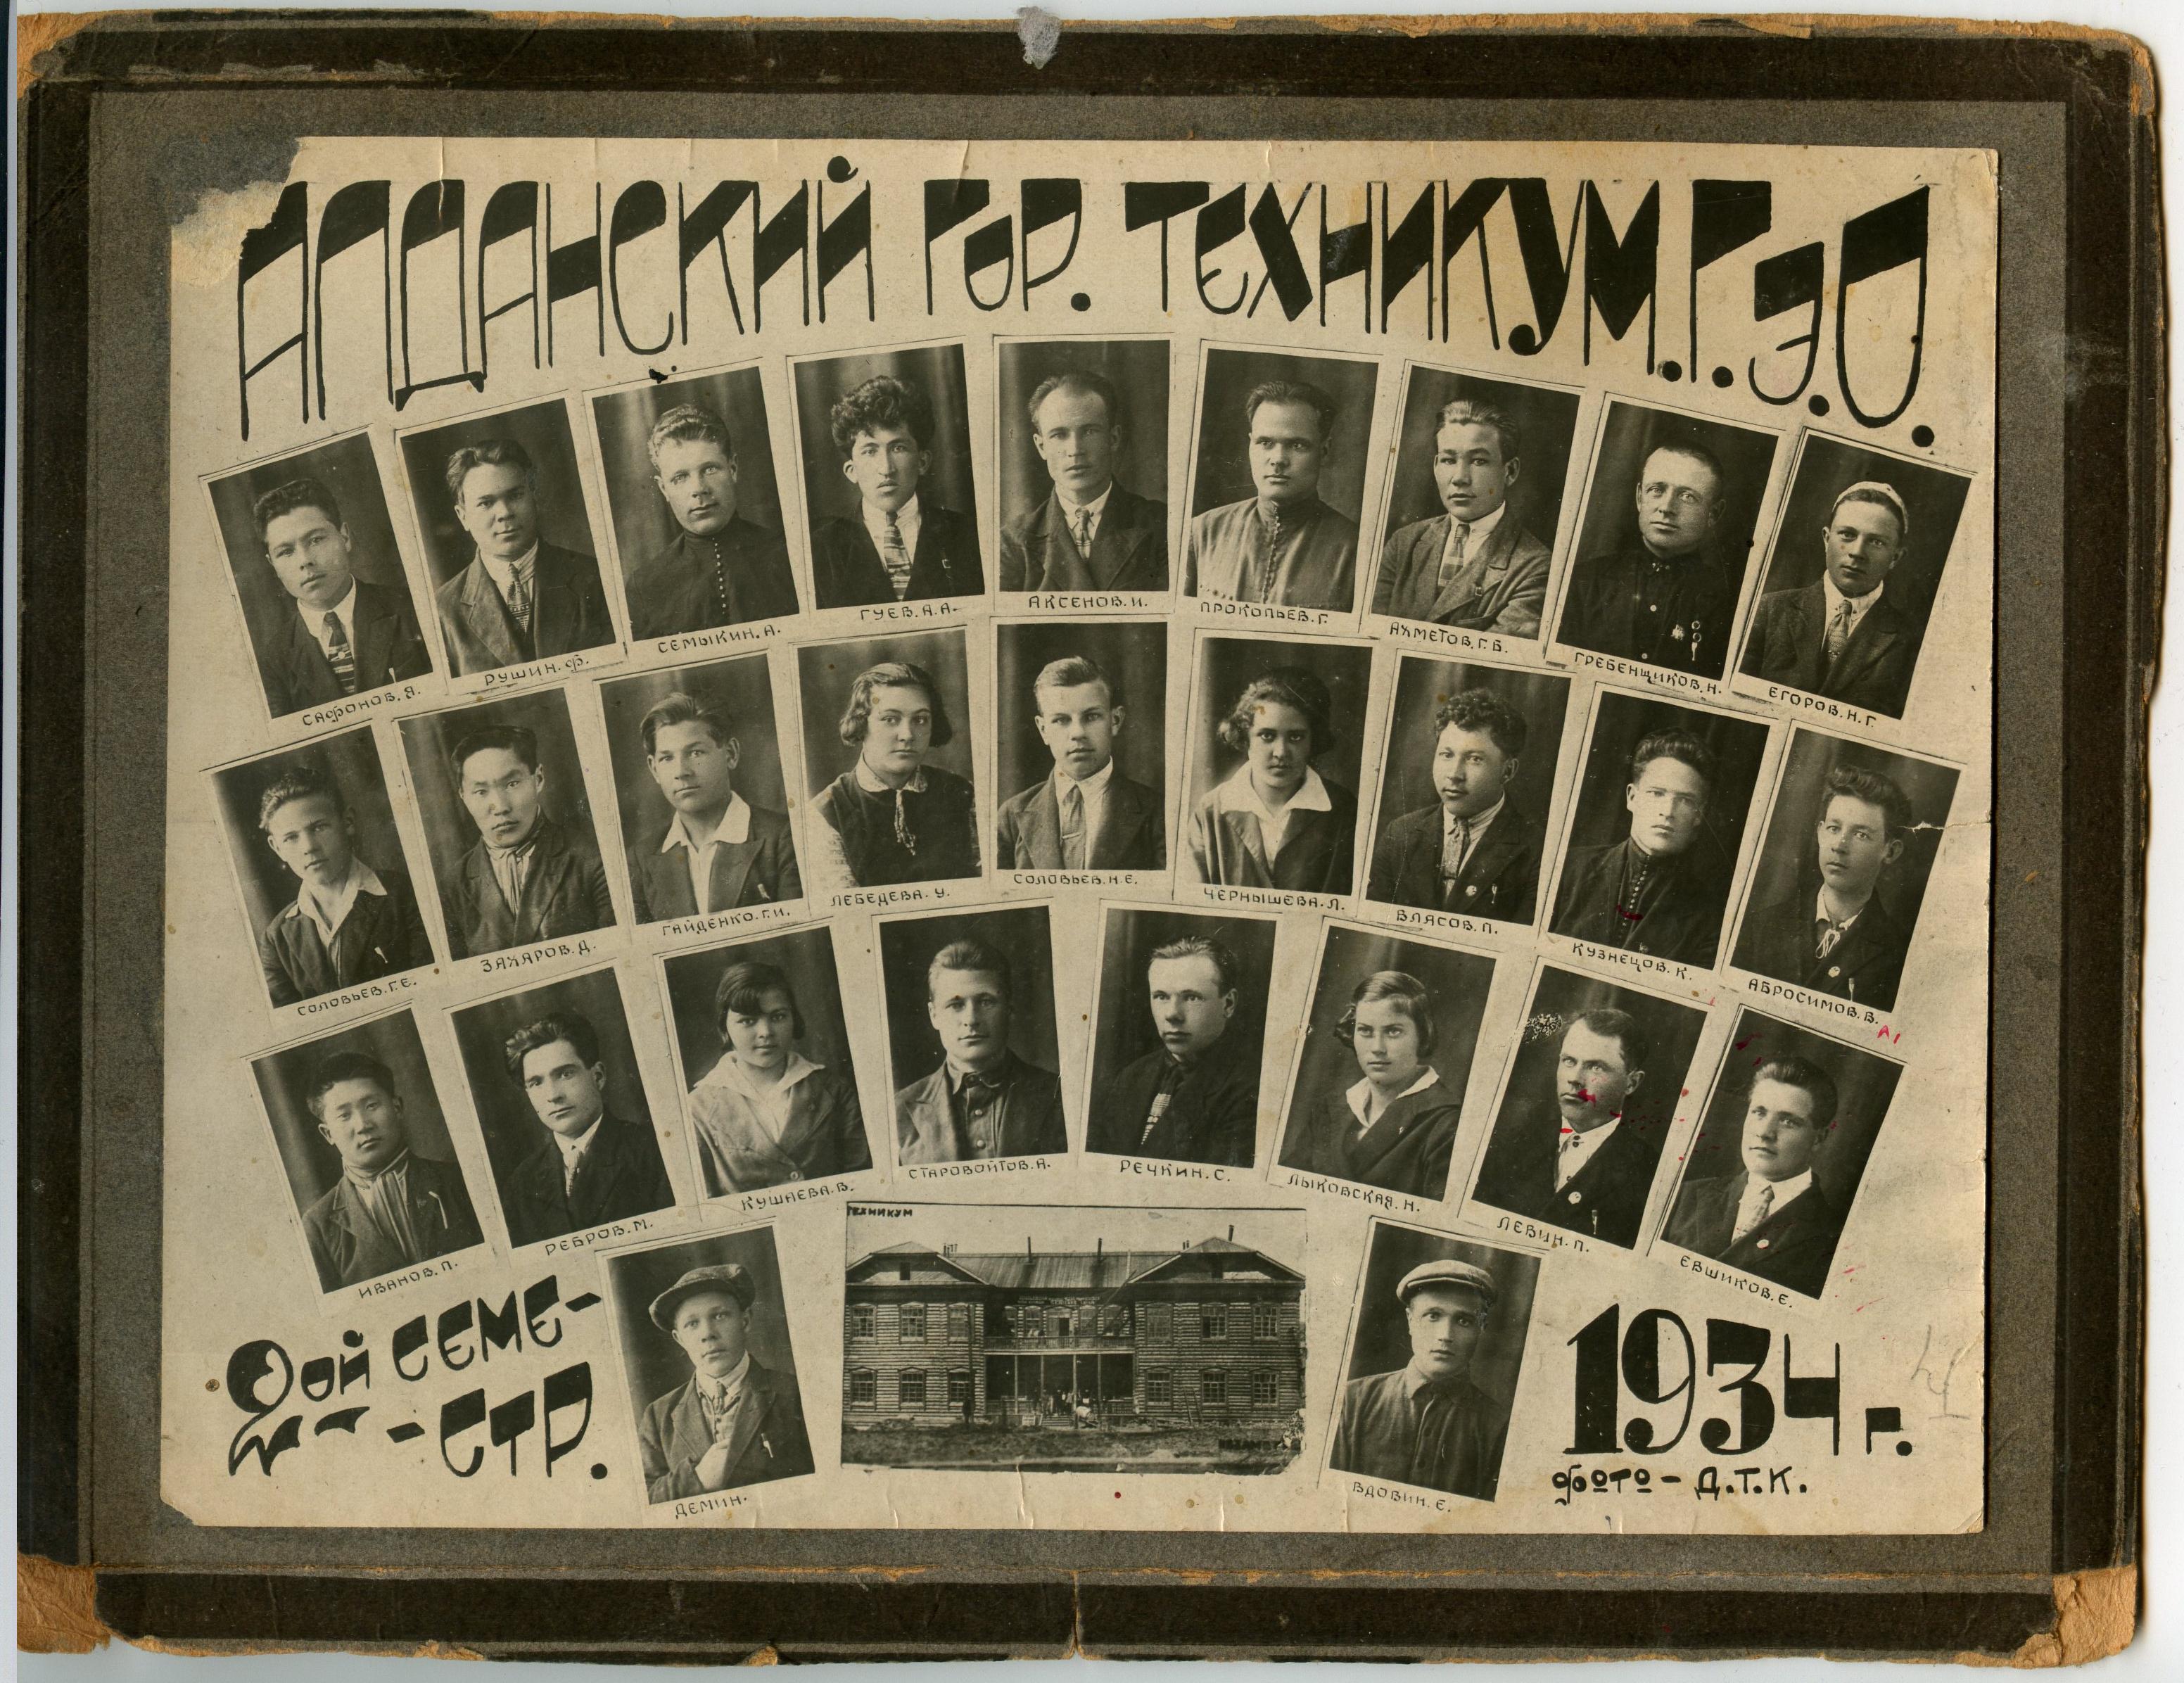 АЛДАНСКИЙ ГОР. ТЕХНИКУМ. Г. Э. О.
САФОНОВ. Я.
РУШИН. Ф.
СЕМЫКИН. А.
ГУЕВ. А. А.
АКСЕНОВ. И.
ПРОКОПЬЕВ. Г.
АХМЕТОВ. Г. Б.
ГРЕБЕНЩИКОВ. Н.
ЕГОРОВ. Н. Г.
СОЛОВЬЕВ. Г. Е.
ЗАХАРОВ. Д.
ГАЙДЕНКО. Г. И.
ЛЕБЕДЕВА. У.
СОЛОВЬЕВ. Н. Е.
ЧЕРНЫШЕВА. Л.
ВЛАСОВ. П.
КУЗНЕЦОВ. К.
АБРОСИМОВ. В.
ИВАНОВ. П.
РЕБРОВ. М.
КУШАЕВА. В.
СТАРОВОЙТОВ. А.
РЕЧКИН. С.
ЛЫКОВСКАЯ. Н.
ЛЕВИН. П.
ЕВШИКОВ. Е.
ТЕХНИКУМ
2ОЙ СЕМЕ-
-СТР.
ДЕМИН.
ВДОВИН. Е.
1934 г.
ФОТО – Д. Т. К.